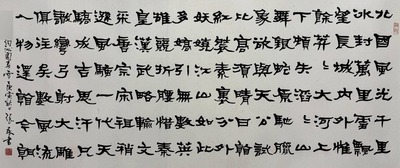 北國風光千里
冰封萬里雪飄
望長城內外惟
餘莽莽大河上
下頓失滔滔山
舞銀蛇原馳蠟
象欲與天公試
比高須晴日看
紅裝素裹分外
妖嬈江山如此
多嬌引無數英
雄競折腰惜秦
皇漢武略輸文
采唐宗宋祖稍
遜風騷一代天
驕成吉思汗只
識彎弓射大雕
俱往矣數風流
人物還看今朝
沁園春雪